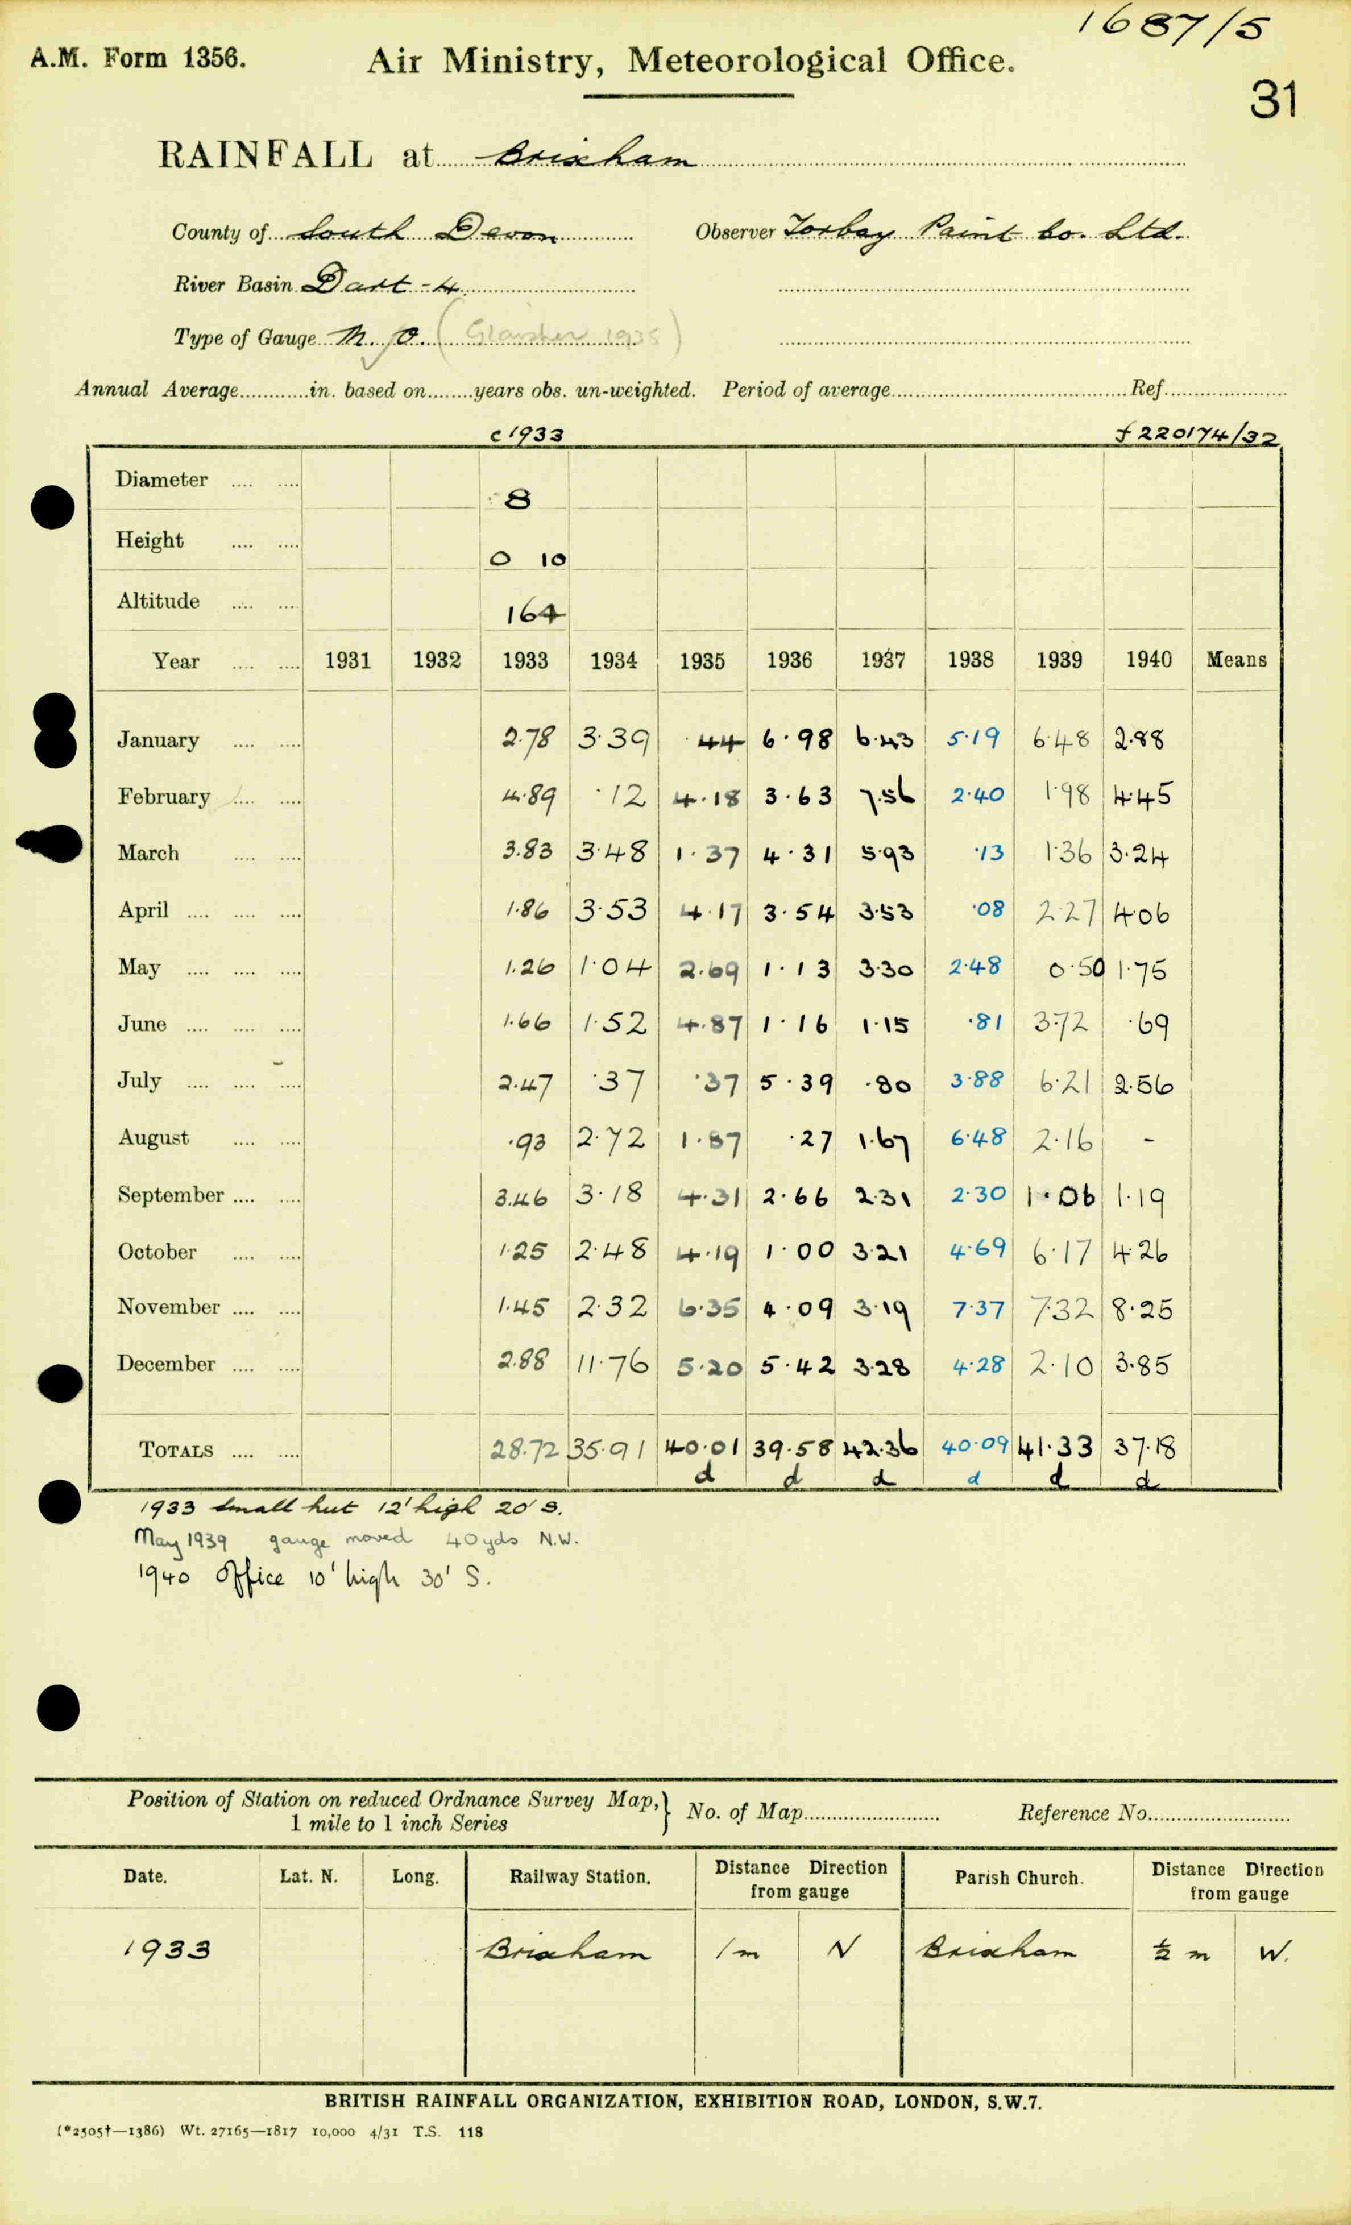 1687/5
A.M. Form 1356. Air Ministry, Meteorological Office.
31
RAINFALL at Brixham
County of South Devon Observer Torbay Paint Co. Ltd.
River Basin Dart - 4
Type of Gauge M. O. (Glaisher 1935)
Annual Average............in. based on........years obs. un-weighted. Period of average.......... Ref..........
c 1933 f 220174/32
Diameter .... .... 8
Height .... .... 0 10
Altitude .... .... 164
Year .... .... 1931 1932 1933 1934 1935 1936 1937 1938 1939 1940 Means
January .... .... 2.78 3.39 .44 6.98 6.43 5.19 6.48 2.88
February .... .... 4.89 .12 4.18 3.63 7.56 2.40 1.98 4.45
March .... .... 3.83 3.48 1.37 4.31 5.93 .13 1.36 3.24
April .... .... .... 1.86 3.53 4.17 3.54 3.53 .08 2.27 4.06
May .... .... .... 1.26 1.04 2.69 1.13 3.30 2.48 0.50 1.75
June .... .... .... 1.66 1.52 4.87 1.16 1.15 .81 3.72 .69
July .... .... .... 2.47 .37 .37 5.39 .80 3.88 6.21 2.56
August .... .... .93 2.72 1.87 .27 1.67 6.48 2.16 -
September .... .... 3.46 3.18 4.31 2.66 2.31 2.30 1.06 1.19
October .... .... 1.25 2.48 4.19 1.00 3.21 4.69 6.17 4.26
November .... .... 1.45 2.32 6.35 4.09 3.19 7.37 7.32 8.25
December .... .... 2.88 11.76 5.20 5.42 3.28 4.28 2.10 3.85
TOTALS .... .... 28.72 35.91 40.01 39.58 42.36 40.09 41.33 37.18
d d d d d d
1933 small hut 12' high 20' S.
May 1939 gauge moved 40 yds N.W.
1940 Office 10' high 30' S.
Position of Station on reduced Ordnance Survey Map, } No. of Map.......... Reference No..........
1 mile to 1 inch Series
Date. Lat. N. Long. Railway Station. Distance Direction from gauge Parish Church. Distance Direction from gauge
1933 Brixham 1 m N Brixham ½ m W.
BRITISH RAINFALL ORGANIZATION, EXHIBITION ROAD, LONDON, S.W.7.
(*2505†—1386) Wt. 27165—1817 10,000 4/31 T.S. 118